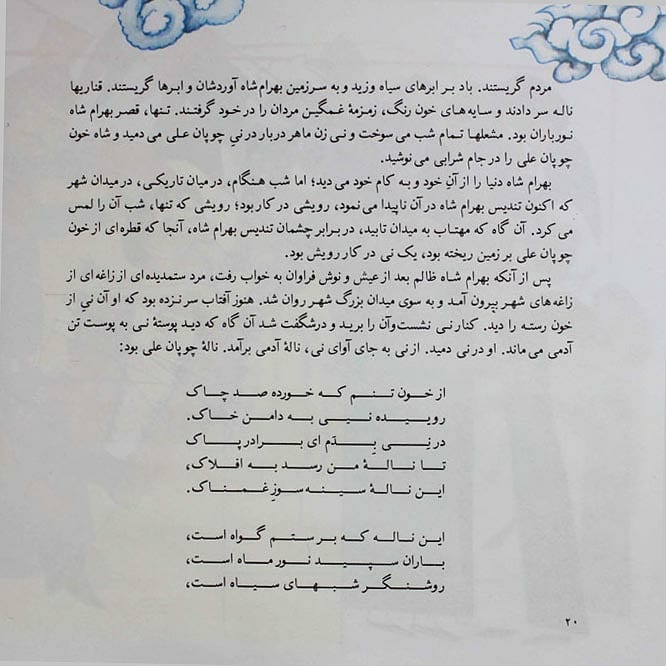 مردم گریستند. باد بر ابرهای سیاه وزید و به سرزمین بهرام شاه آوردشان و ابرها گریستند. قناریها
ناله سر دادند و سایه های خون رنگ، زمزمهٔ غمگین مردان را در خود گرفتند. تنها، قصر بهرام شاه
نورباران بود. مشعلها تمام شب می سوخت و نی زن ماهر دربار در نیِ چوپان علی می دمید و شاه خون
چوپان علی را در جام شرابی می نوشید.
بهرام شاه دنیا را از آنِ خود و به کام خود می دید؛ اما شب هنگام، در میان تاریکی، در میدان شهر
که اکنون تندیس بهرام شاه در آن ناپیدا می نمود، رویشی در کار بود؛ رویشی که تنها، شب آن را لمس
می کرد. آن گاه که مهتاب به میدان تابید، در برابر چشمان تندیس بهرام شاه، آنجا که قطره ای از خون
چوپان علی بر زمین ریخته بود، یک نی در کار رویش بود.
پس از آنکه بهرام شاه ظالم بعد از عیش و نوش فراوان به خواب رفت، مرد ستمدیده ای از زاغه ای از
زاغه های شهر بیرون آمد و به سوی میدان بزرگ شهر روان شد. هنوز آفتاب سر نزده بود که او آن نیِ از
خون رسته را دید. کنار نی نشست و آن را برید و در شگفت شد آن گاه که دید پوستهٔ نی به پوست تن
آدمی می ماند. او در نی دمید. از نی به جای آوای نی، نالهٔ آدمی برآمد. نالهٔ چوپان علی بود:
از خون تنم که خورده صد چاک
روییده نیی به دامن خاک.
در نِیی بِدَم ای برادر پاک
تا نالهٔ من رسد به افلاک،
این نالهٔ سینه سوزِ غمناک.
این ناله که بر ستم گواه است،
باران سپید نور ماه است،
روشنگر شبهای سیاه است،
۲۰